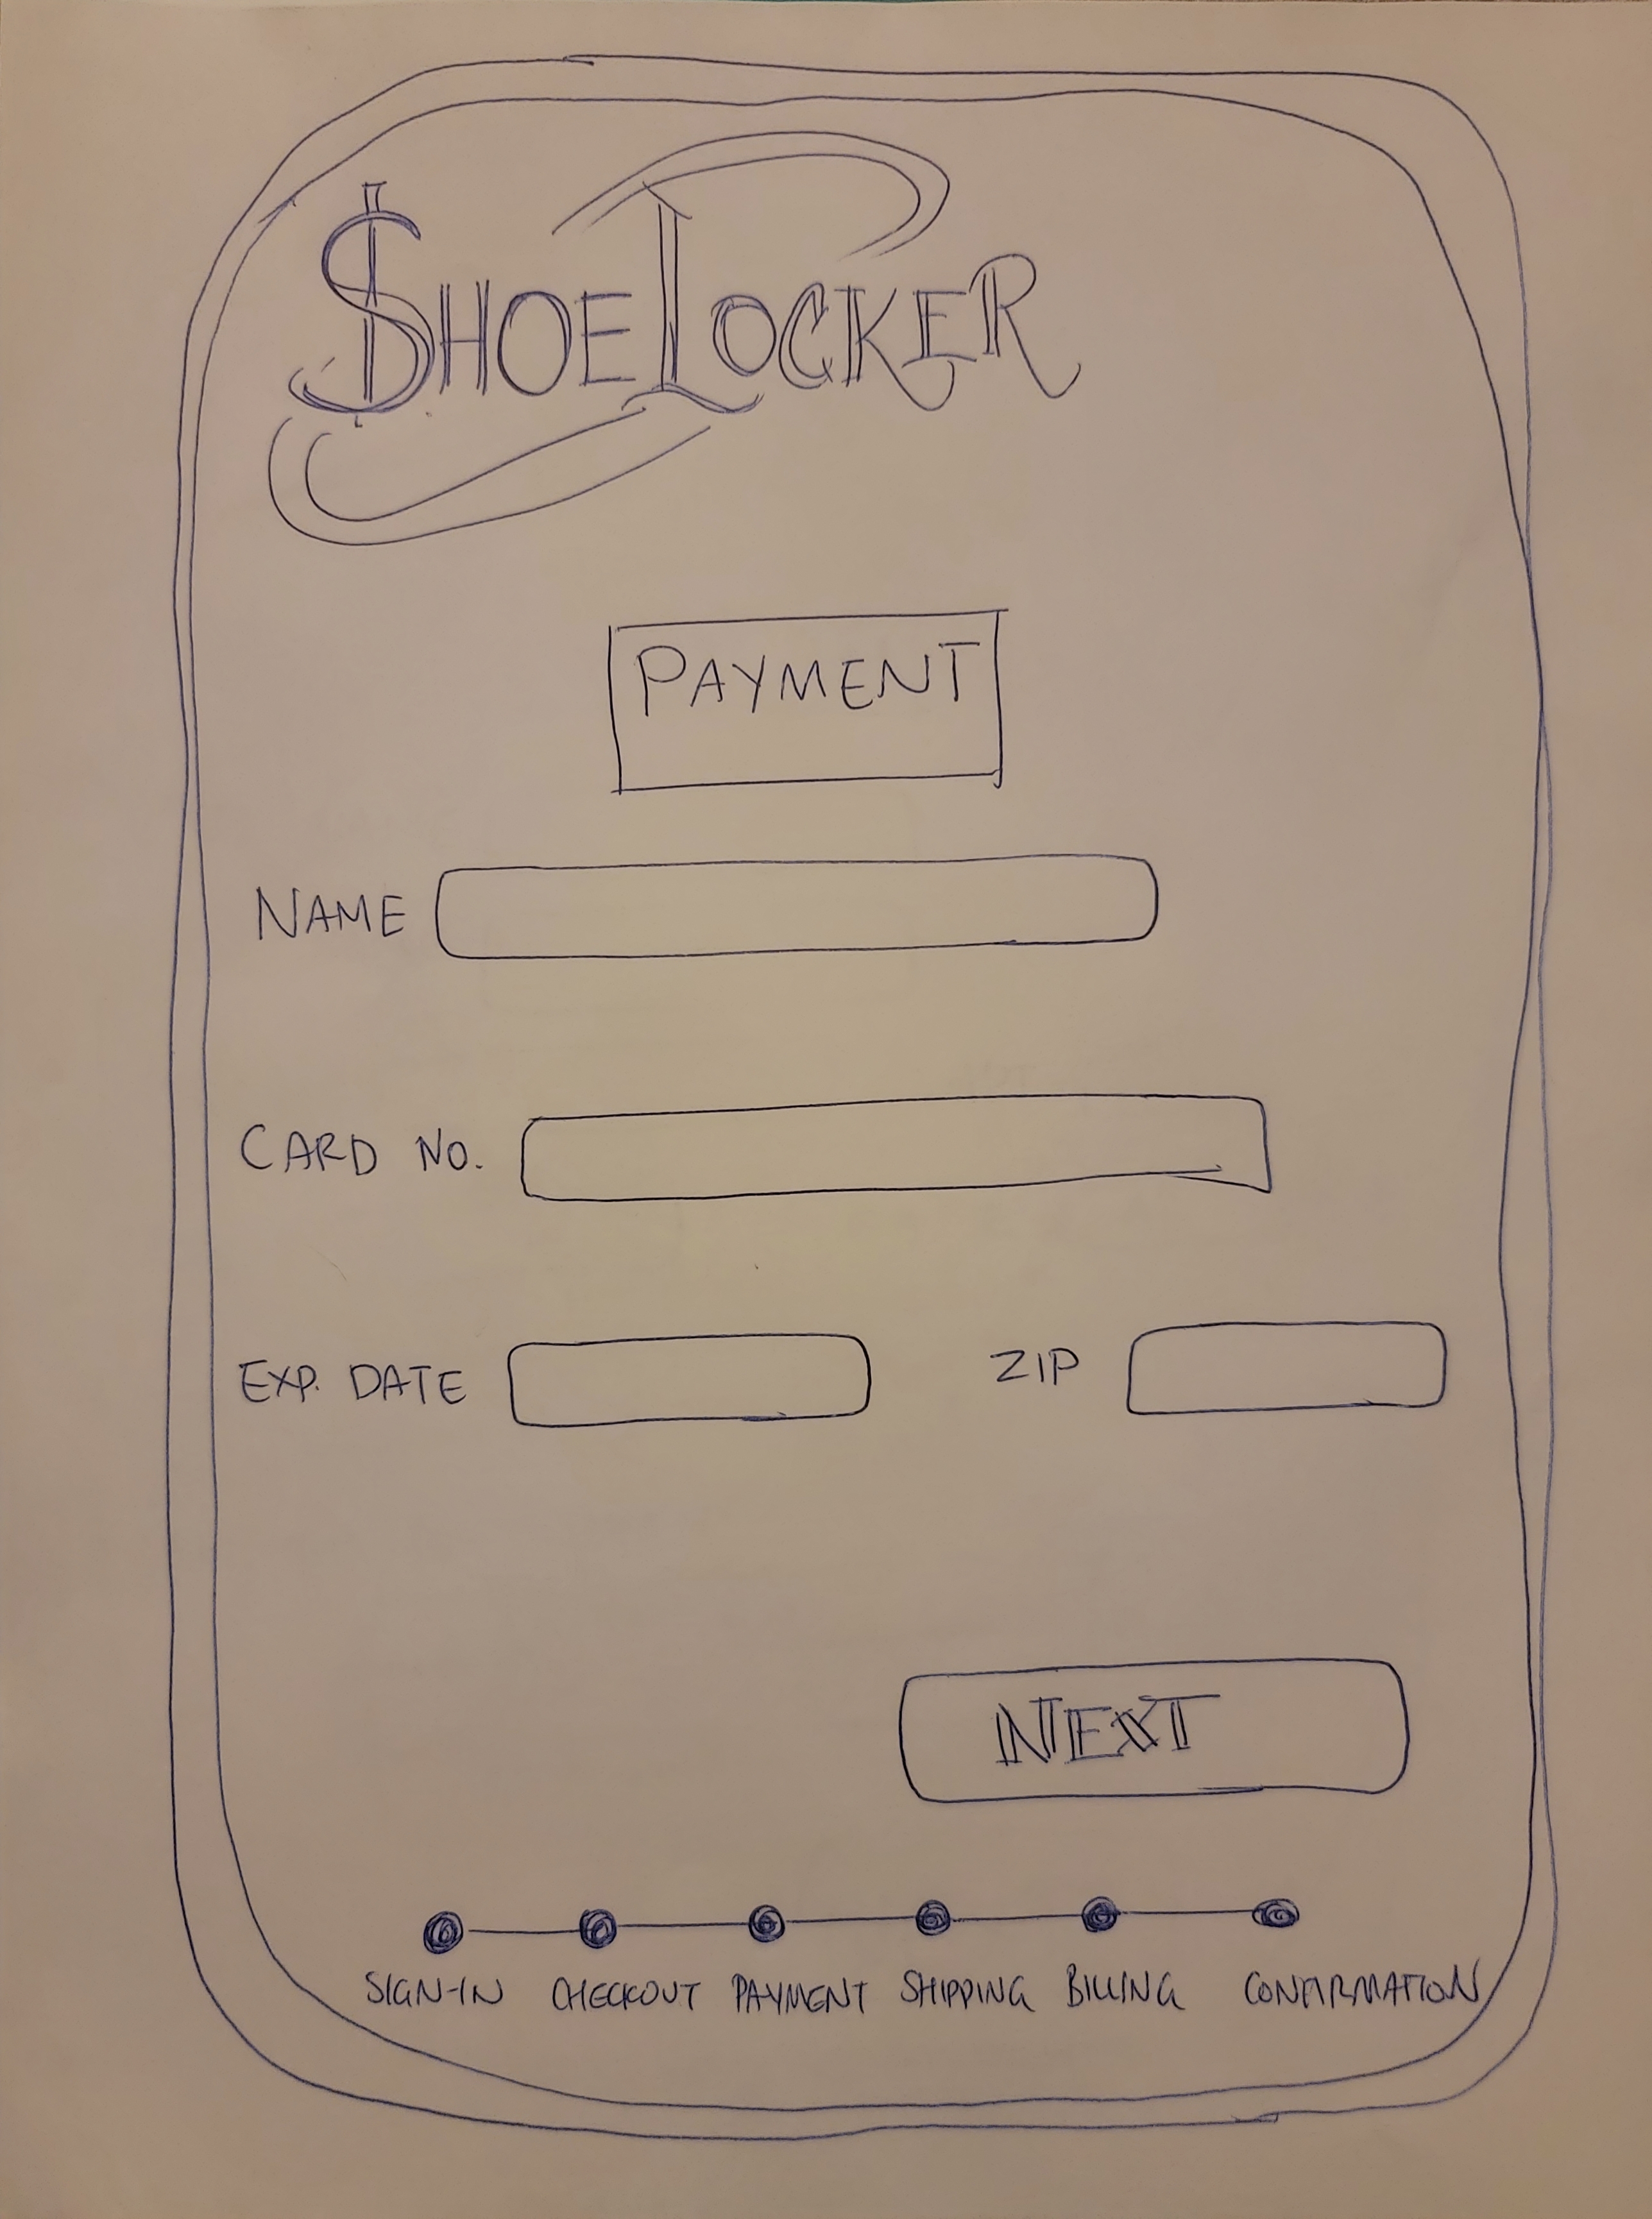 $HOELOCKER
PAYMENT
NAME
CARD NO.
EXP. DATE ZIP
NEXT
SIGN-IN CHECKOUT PAYMENT SHIPPING BILLING CONFIRMATION